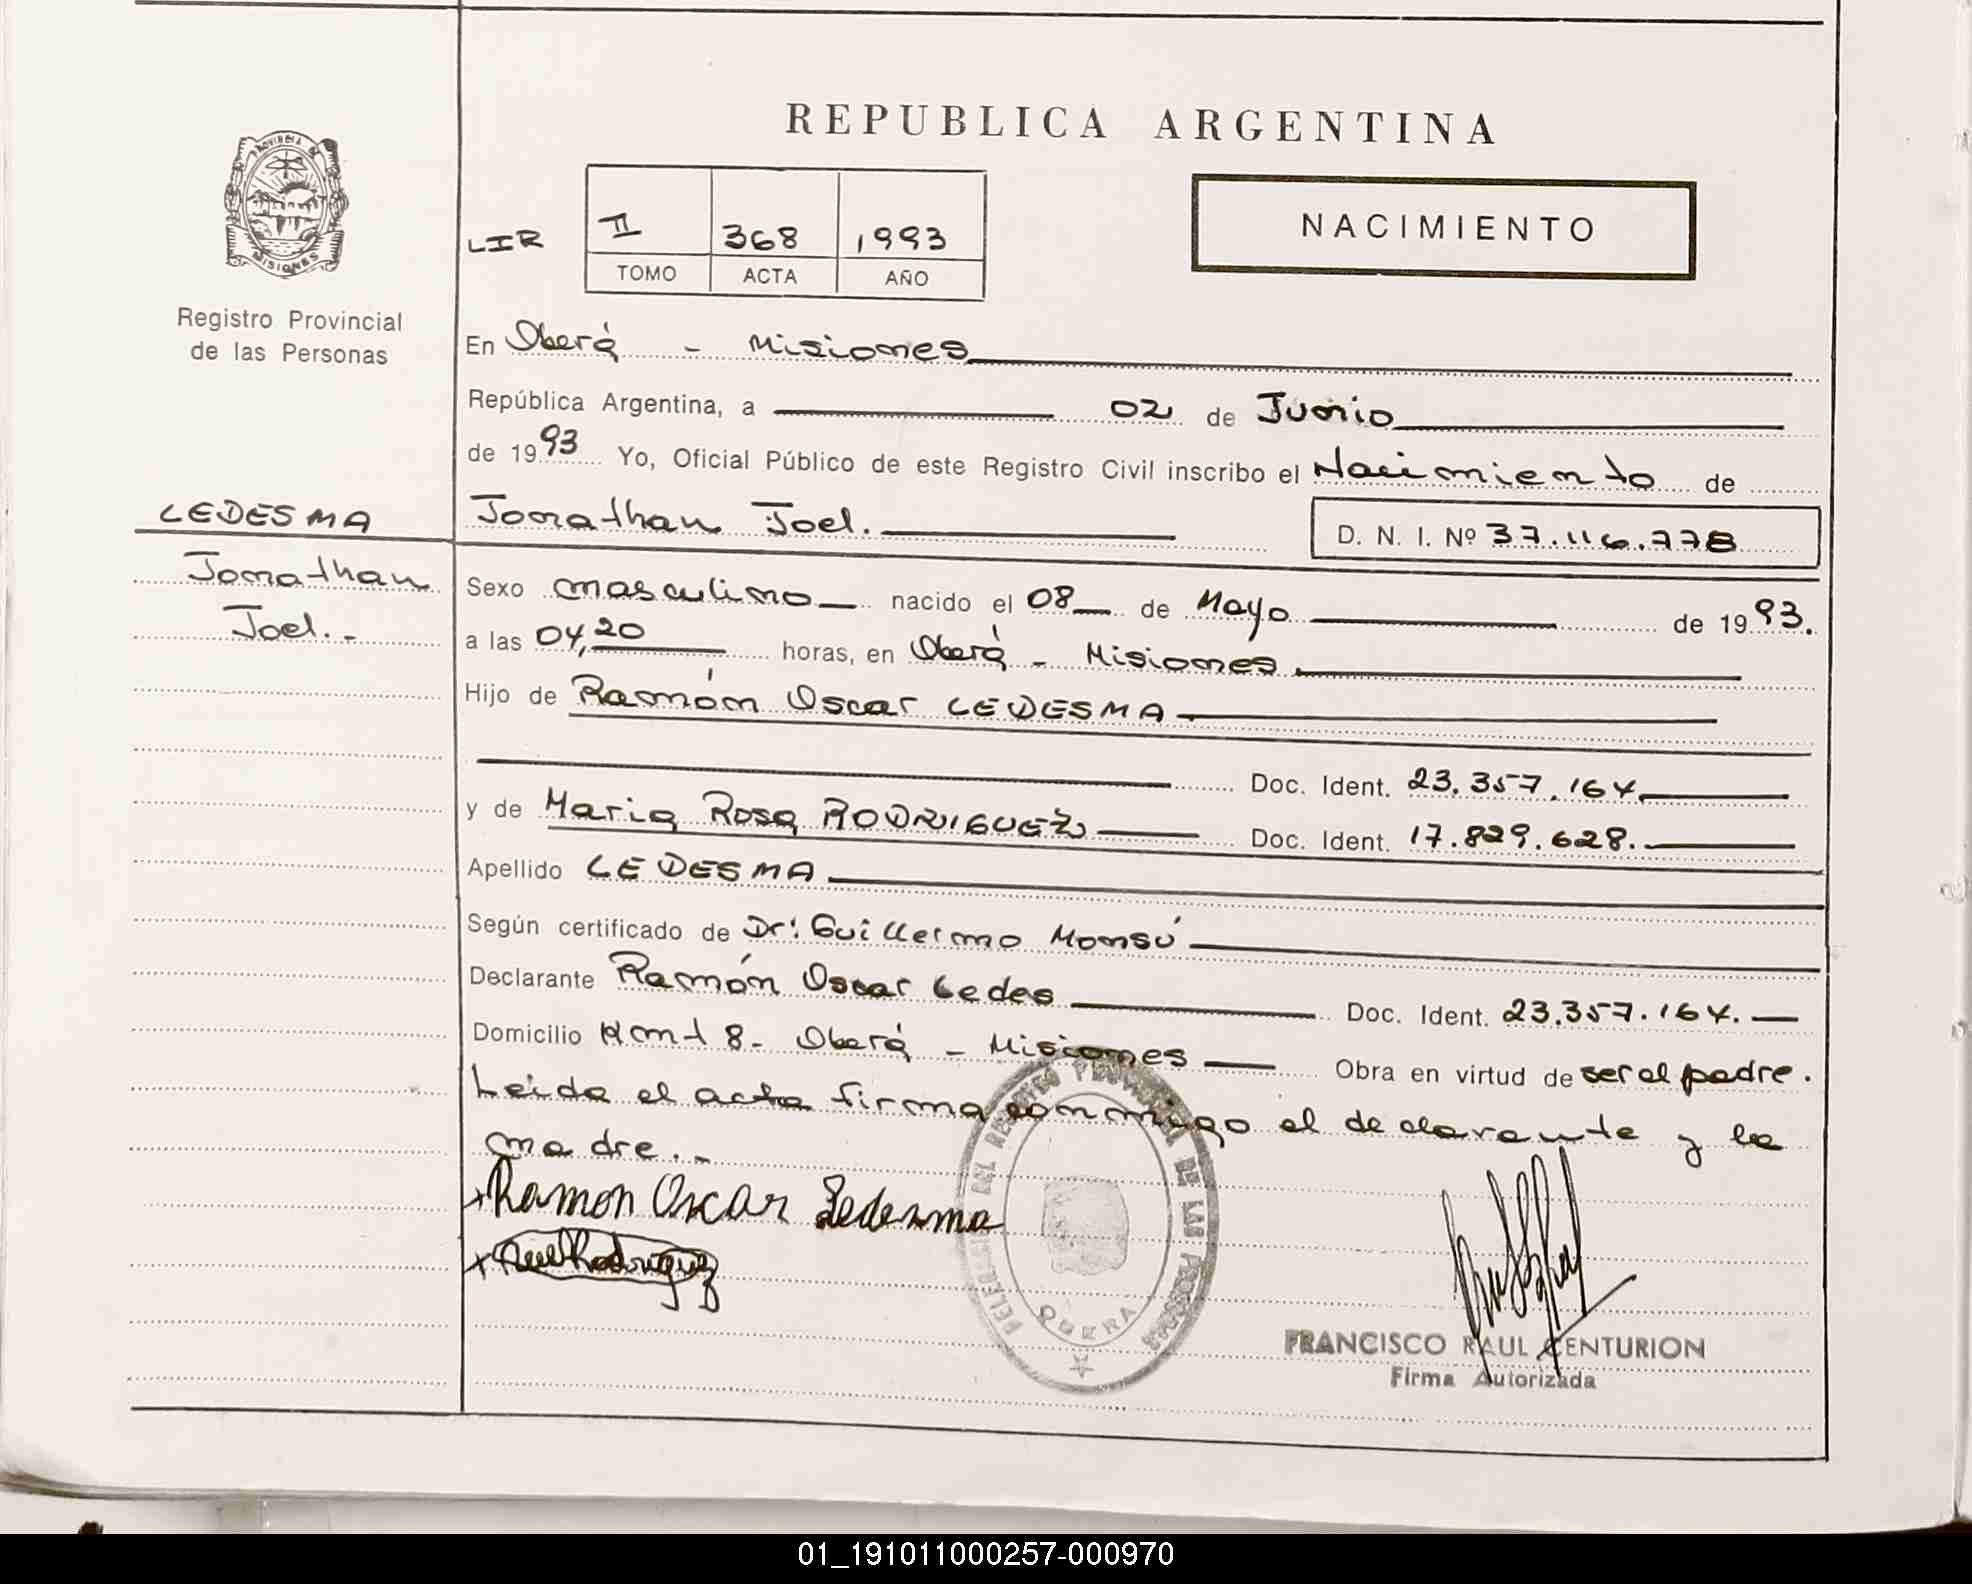 REPUBLICA ARGENTINA
PROVINCIA DE
MISIONES
Registro Provincial
de las Personas
LIR
II 368 1993
TOMO ACTA AÑO
NACIMIENTO
En Oberá - Misiones
República Argentina, a 02 de Junio
de 1993 Yo, Oficial Público de este Registro Civil inscribo el Nacimiento de
LEDESMA
Jonathan
Joel.-
Jonathan Joel.
D. N. I. Nº 37.116.778
Sexo masculino nacido el 08 de Mayo de 1993.
a las 04,20 horas, en Oberá - Misiones
Hijo de Ramón Oscar LEDESMA
Doc. Ident. 23.357.164
y de Maria Rosa RODRIGUEZ Doc. Ident. 17.829.628.
Apellido LEDESMA
Según certificado de Dr: Guillermo Monsú
Declarante Ramón Oscar Ledes Doc. Ident. 23.357.164.
Domicilio Kmt 8- Oberá - Misiones Obra en virtud de ser el padre.
Leida el acta firma conmigo el declarante y la
madre.-
x Ramon Oscar Ledesma
x Rodriguez
DEL REGISTRO PROVINCIAL DE LAS PERSONAS
OBERA
FRANCISCO RAUL CENTURION
Firma Autorizada
01_191011000257-000970